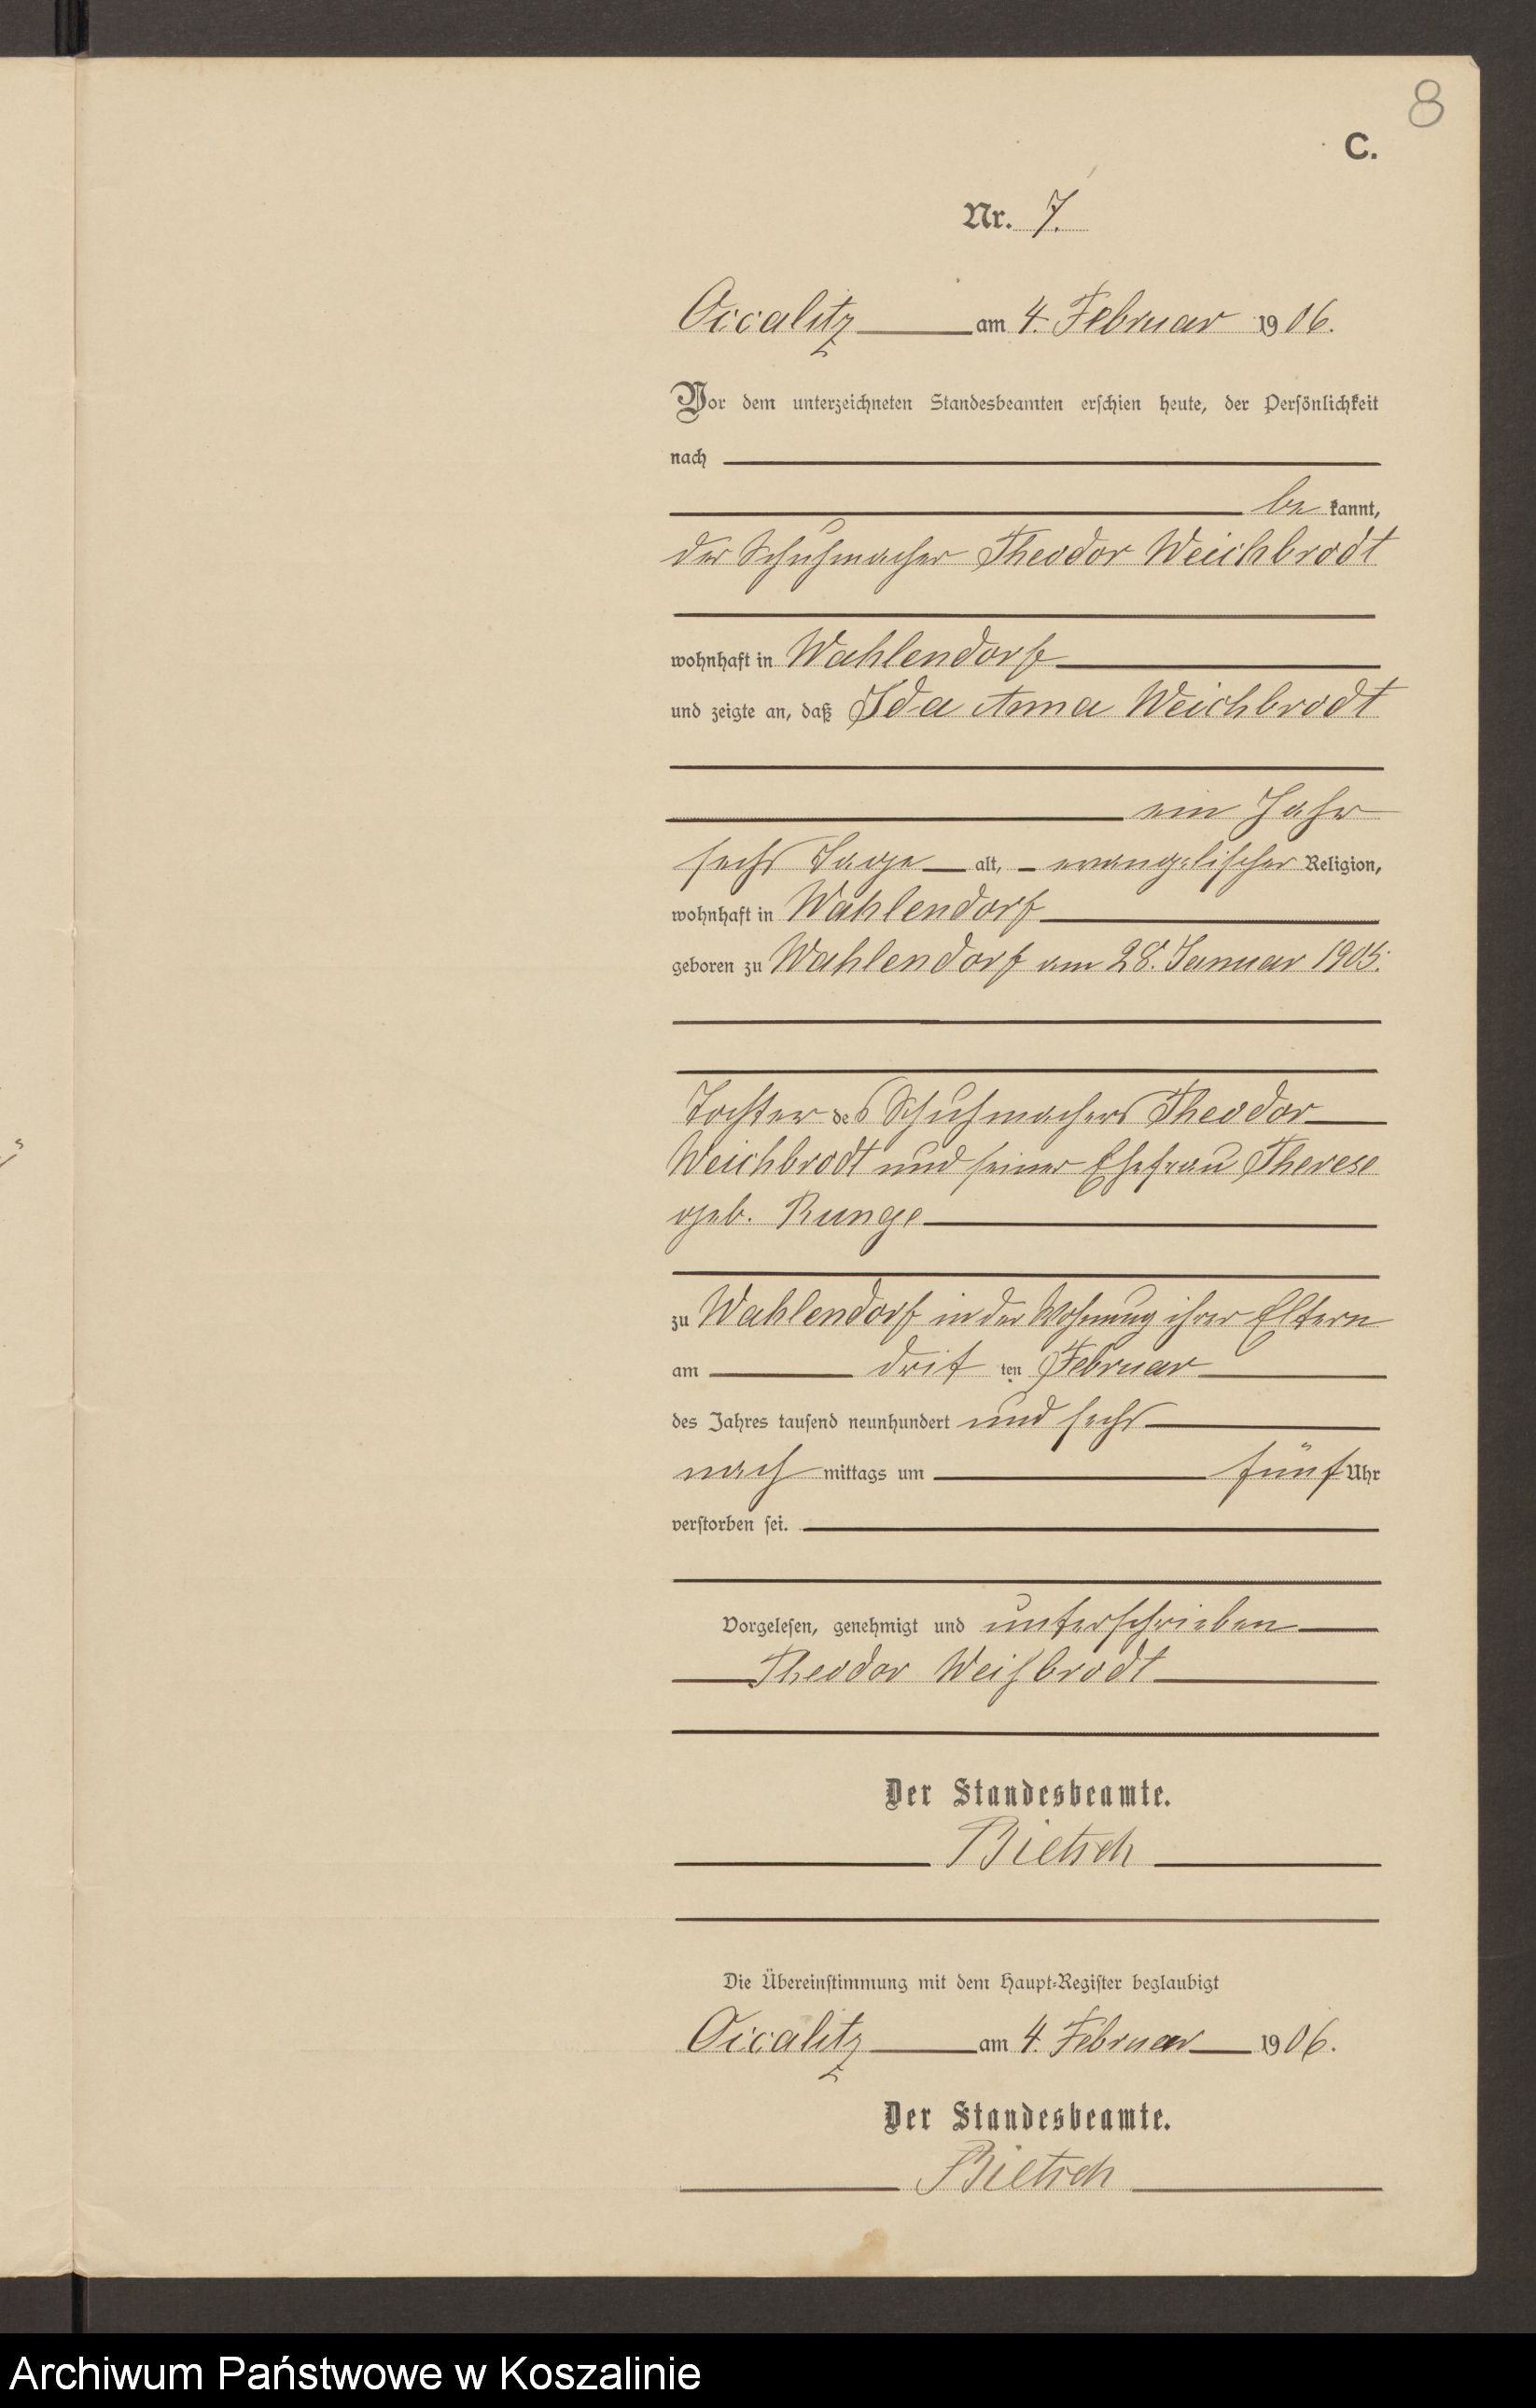 8
C.
Nr. 7.
Occalitz am 4. Februar 1906.
Vor dem unterzeichneten Standesbeamten erschien heute, der Persönlichkeit
nach
be kannt,
der Schuhmacher Theodor Weichbrodt
wohnhaft in Wahlendorf
und zeigte an, daß Ida Anna Weichbrodt
ein Jahr
sechs Tage alt, evangelischer Religion,
wohnhaft in Wahlendorf
geboren zu Wahlendorf am 28. Januar 1905.
Tochter des Schuhmachers Theodor
Weichbrodt und seiner Ehefrau Therese
geb. Runge
zu Wahlendorf in der Wohnung ihrer Eltern
am drit ten Februar
des Jahres tausend neunhundert und sechs
nach mittags um fünf Uhr
verstorben sei.
Vorgelesen, genehmigt und unterschrieben
Theodor Weihbrodt
Der Standesbeamte.
Bietsch
Die Übereinstimmung mit dem Haupt-Register beglaubigt
Occalitz am 4. Februar 1906.
Der Standesbeamte.
Bietsch
Archiwum Państwowe w Koszalinie